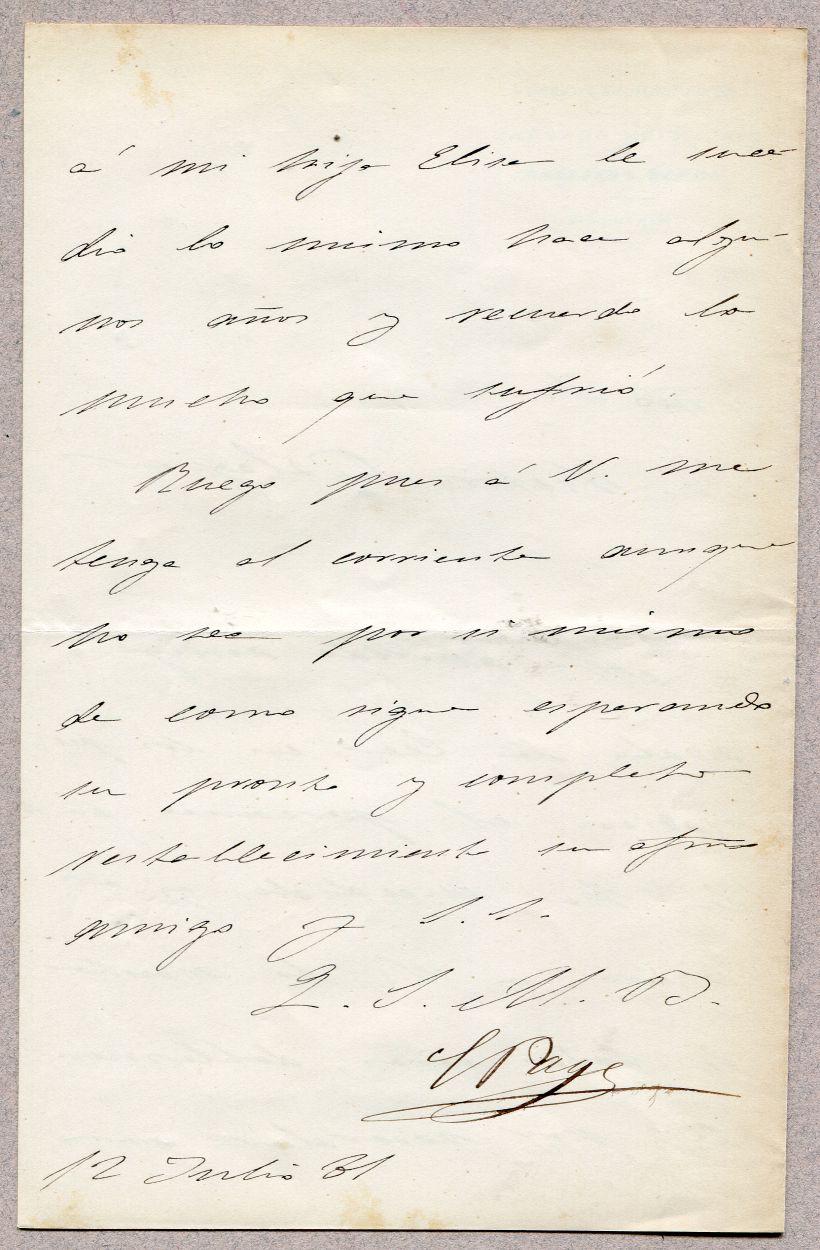 á mi hija Elisa le suce
dió lo mismo hace algu-
nos años y recuerdo lo
mucho que sufrió.
Ruego pues á V. me
tenga al corriente aunque
no sea por si mismo
de como sigue esperando
su pronto y completo
restablecimiento su afmo
amigo y S. S.
Q. S. M. B.
12 Julio 81